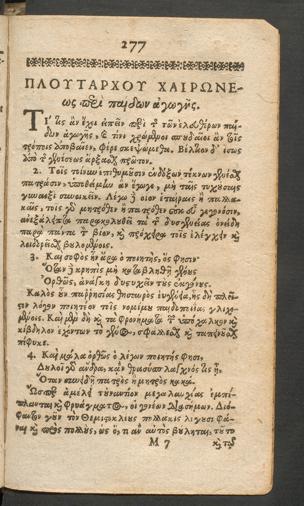 277
ΠΛΟΥΤΑΡΧΟΥ ΧΑΙΡΩΝΕ-
ως περὶ παίδων ἀγωγῆς.
Τί τις ἂν ἔχοι εἰπεῖν περὶ τῆς τῶν ἐλευθέρων παί-
δων ἀγωγῆς, καὶ τίνι χρώμενοι σπουδαῖοι ἂν τοὺς
τρόπους ἀποβαῖεν, φέρε σκεψώμεθα. Βέλτιον δ' ἴσως
ἀπὸ τῆς γενέσεως ἄρξασθαι πρῶτον.
2. Τοῖς τοίνυν ἐπιθυμοῦσιν ἐνδόξων τέκνων γενέσθαι
πατράσιν, ὑποθείμην ἂν ἔγωγε, μὴ ταῖς τυχούσαις
γυναιξὶ συνοικεῖν. Λέγω δὲ οἷον ἑταίραις ἢ παλλα-
καῖς, τοῖς γὰρ μητρόθεν ἢ πατρόθεν οὐκ εὖ γεγονόσιν,
ἀνεξάλειπτα παρακολουθεῖ τὰ τῆς δυσγενείας ὀνείδη
παρὰ πάντα τὸν βίον, καὶ πρόχειρα τοῖς ἐλέγχειν καὶ
λοιδορεῖσθαι βουλομένοις.
3. Καὶ σοφὸς ἦν ἄρα ὁ ποιητής, ὅς φησιν·
Ὅταν δὲ κρηπὶς μὴ καταβληθῇ γένους
Ὀρθῶς, ἀνάγκη δυστυχεῖν τοὺς ἐκγόνους.
Καλὸς οὖν παρρησίας θησαυρὸς εὐγένεια, ἧς δὴ πλεῖ-
στον λόγον ποιητέον τοῖς νομίμου παιδοποιίας γλιχο-
μένοις. Καὶ μὲν δὴ καὶ τὰ φρονήματα τῶν ὑπόχαλκον καὶ
κίβδηλον ἐχόντων τὸ γένος, σφάλλεσθαι καὶ ταπεινοῦσθαι
πέφυκε.
4. Καὶ μάλα ὀρθῶς ὁ λέγων ποιητής φησι,
Δουλοῖ γὰρ ἄνδρα, κἂν θρασύσπλαγχνός τις ᾖ,
Ὅταν συνειδῇ πατρὸς ἢ μητρὸς κακά.
Ὥσπερ ἀμέλει τοὐναντίον μεγαλαυχίας ἐμπί-
πλανται καὶ φρυάγματος, οἱ γονέων διασήμων. Διό-
φαντον γοῦν τὸν Θεμιστοκλέους πολλάκις λέγουσι φά-
ναι καὶ πρὸς πολλούς, ὡς ὅ, τι ἂν αὐτὸς βούληται, τοῦτο
M 7 καὶ τῷ